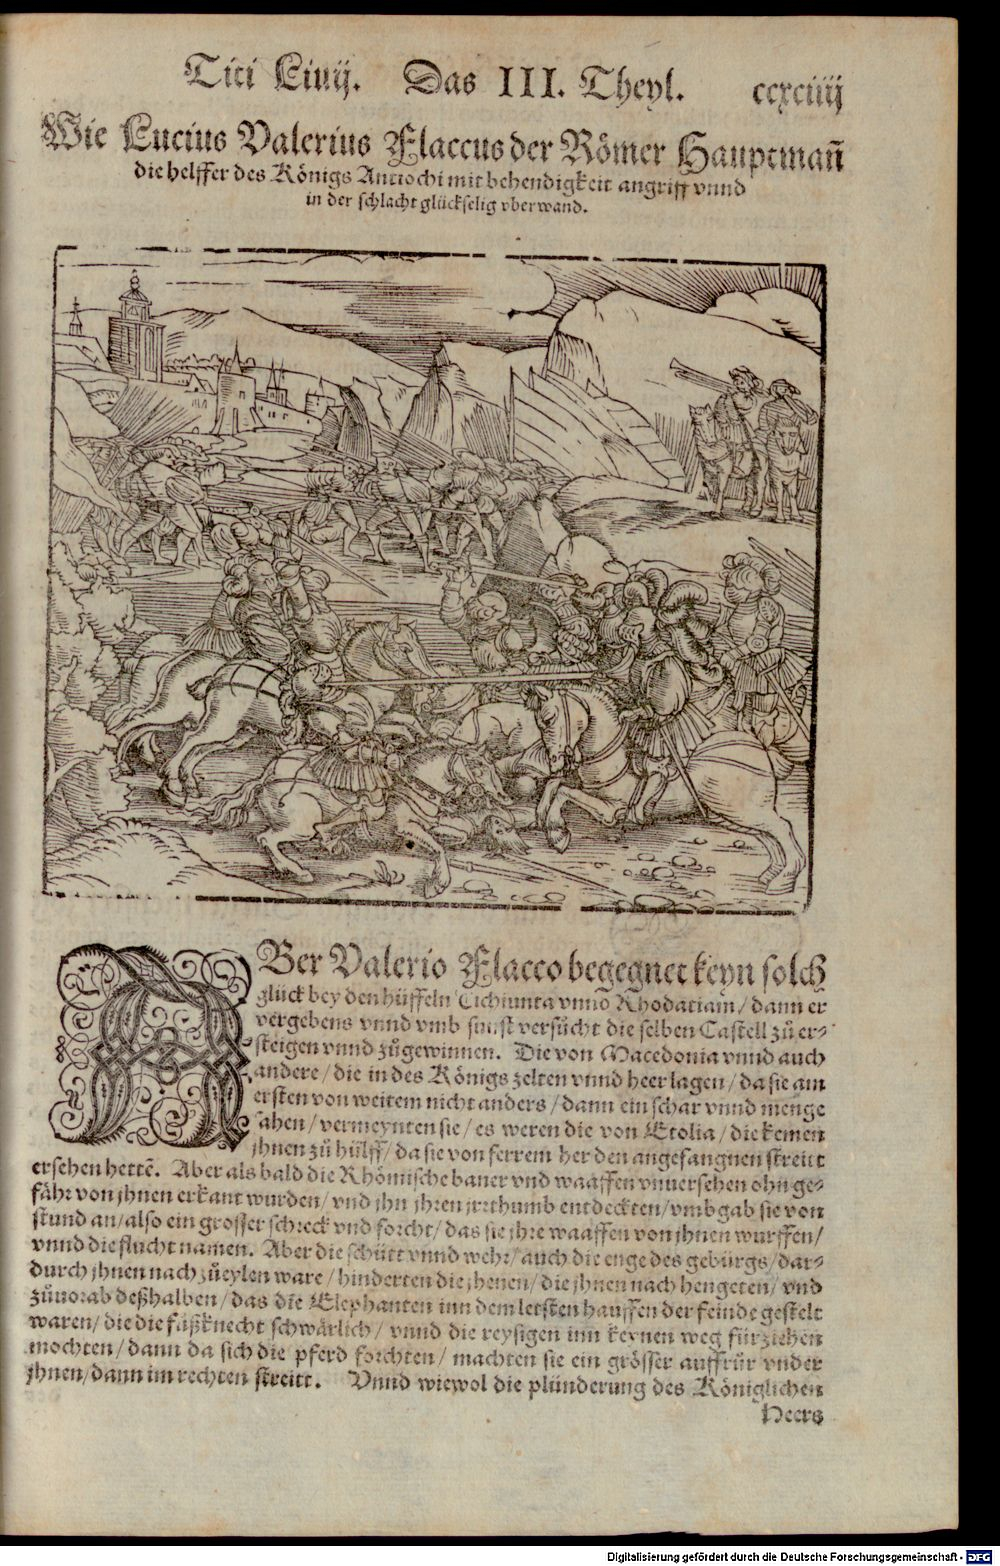 Titi Liuij. Das III. Theyl. ccxciiij
Wie Lucius Valerius Flaccus der Römer Hauptmañ
die helffer des Königs Antiochi mit behendigkeit angriff vnnd
in der schlacht glückselig vberwand.
ABer Valerio Flacco begegnet keyn solch
glück bey den hüffeln Tichiunta vnnd Rhodatiam / dann er
vergebens vnnd vmb sunst versůcht die selben Castell zů er-
steigen vnnd zůgewinnen. Die von Macedonia vnnd auch
andere / die in des Königs zelten vnnd heerlagen / da sie am
ersten von weitem nicht anders / dann ein schar vnnd menge
sahen / vermeynten sie / es weren die von Etolia / die kemen
jhnen zů hülff / da sie von ferrem her den angefangnen streitt
ersehen hettẽ. Aber als bald die Rhömische baner vnd waaffen vnuersehen ohn ge-
fähr von jhnen erkant wurden / vnd jhn jhren jrrthumb entdeckten / vmbgab sie von
stund an / also ein grosser schreck vnd forcht / das sie jhre waaffen von jhnen wurffen /
vnnd die flucht namen. Aber die schütt vnnd wehr / auch die enge des gebürgs / dar-
durch jhnen nach zůeylen ware / hinderten die jhenen / die jhnen nach hengeten / vnd
zůuorab deßhalben / das die Elephanten inn dem letsten hauffen der feinde gestelt
waren / die die fůßknecht schwärlich / vnnd die reysigen inn keynen weg fürziehen
mochten / dann da sich die pferd forchten / machten sie ein grösser auffrůr vnder
jhnen / dann im rechten streitt. Vnnd wiewol die plünderung des Königlichen
Heers
Digitalisierung gefördert durch die Deutsche Forschungsgemeinschaft - DFG